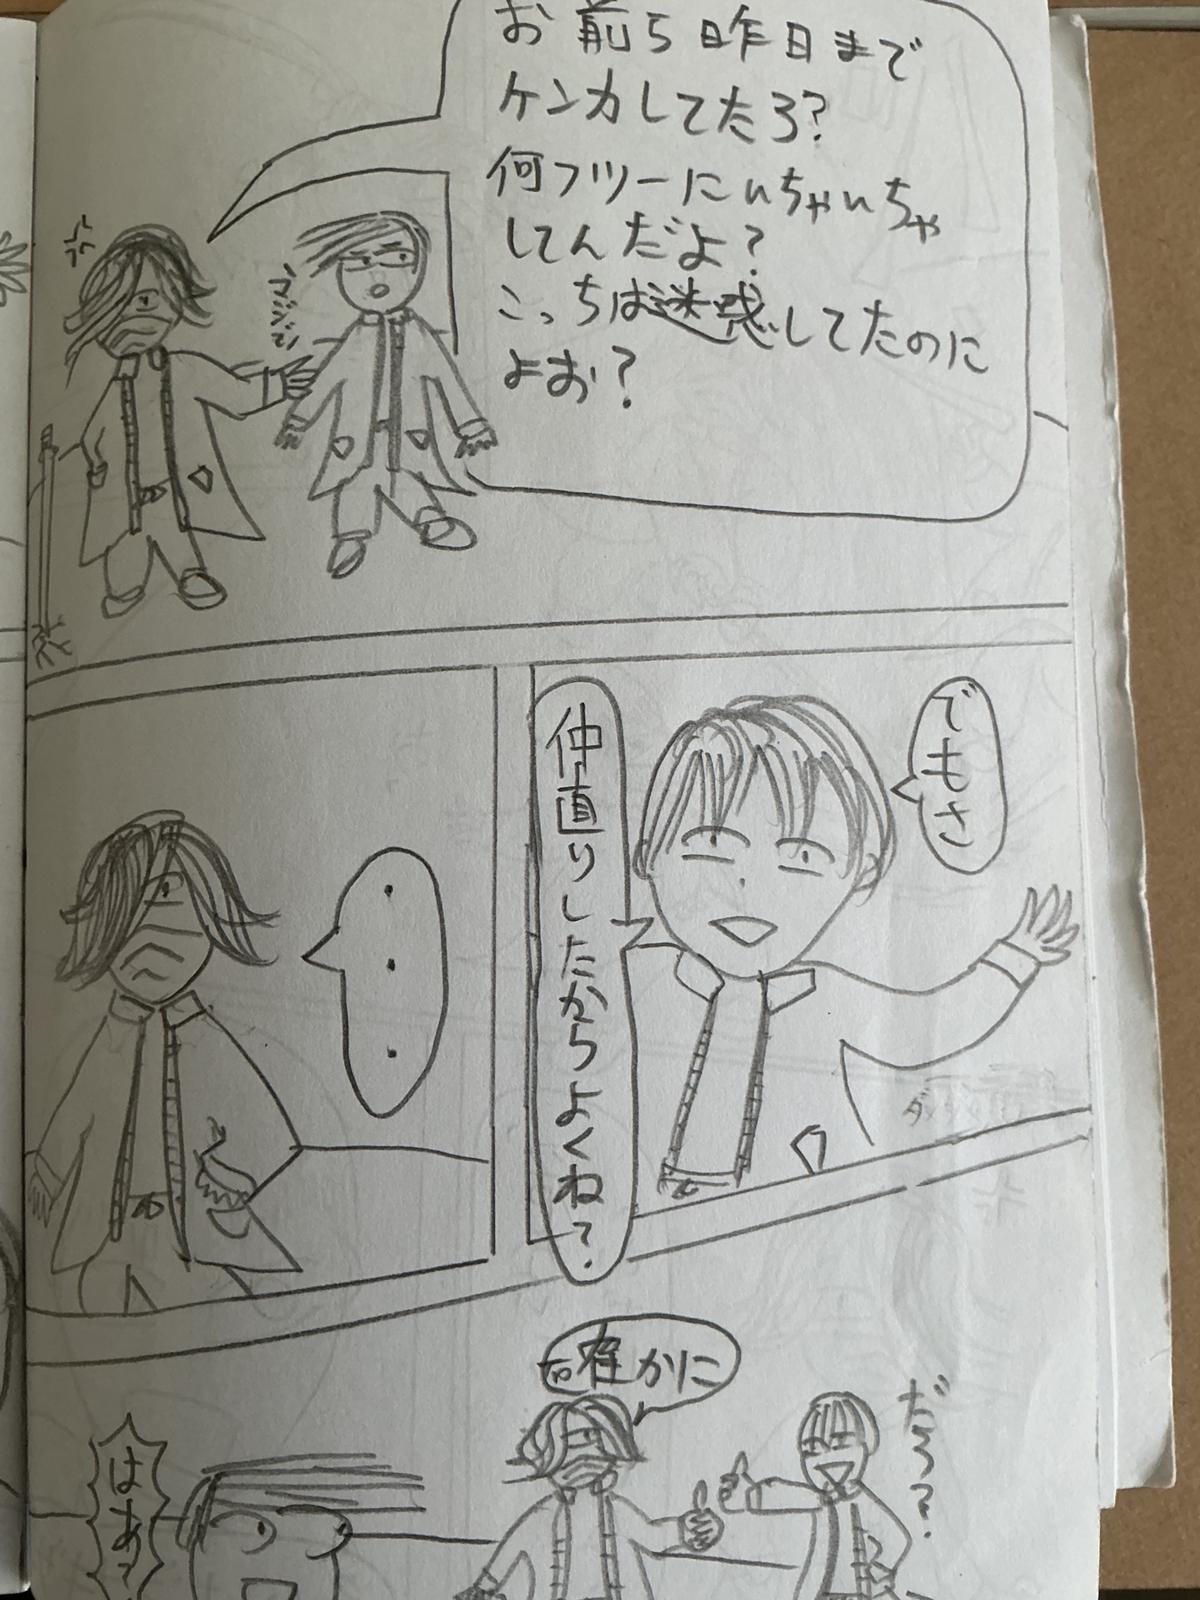 お前ら昨日まで
ケンカしてたろ?
何フツーにいちゃいちゃ
してんだよ?
こっちは迷惑してたのに
よお?
マジで
でもさ
仲直りしたからよくね?
・・・
確かに
だろ?
はあ?